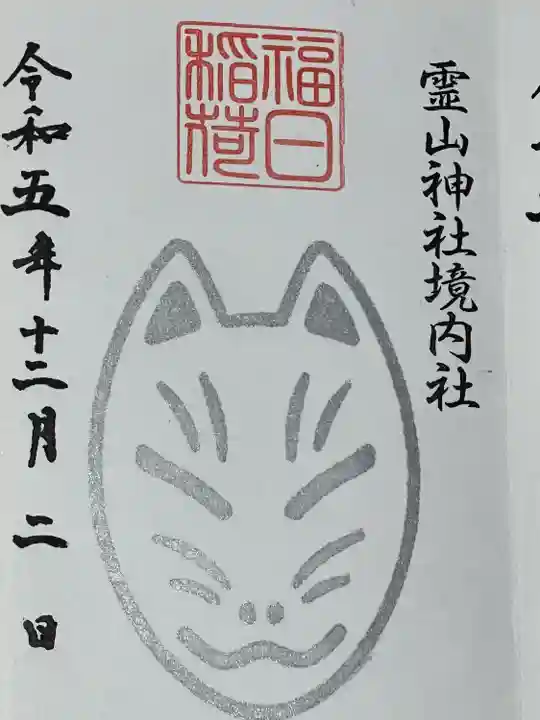 霊山神社境内社
福日
稲荷
令和五年十二月二日